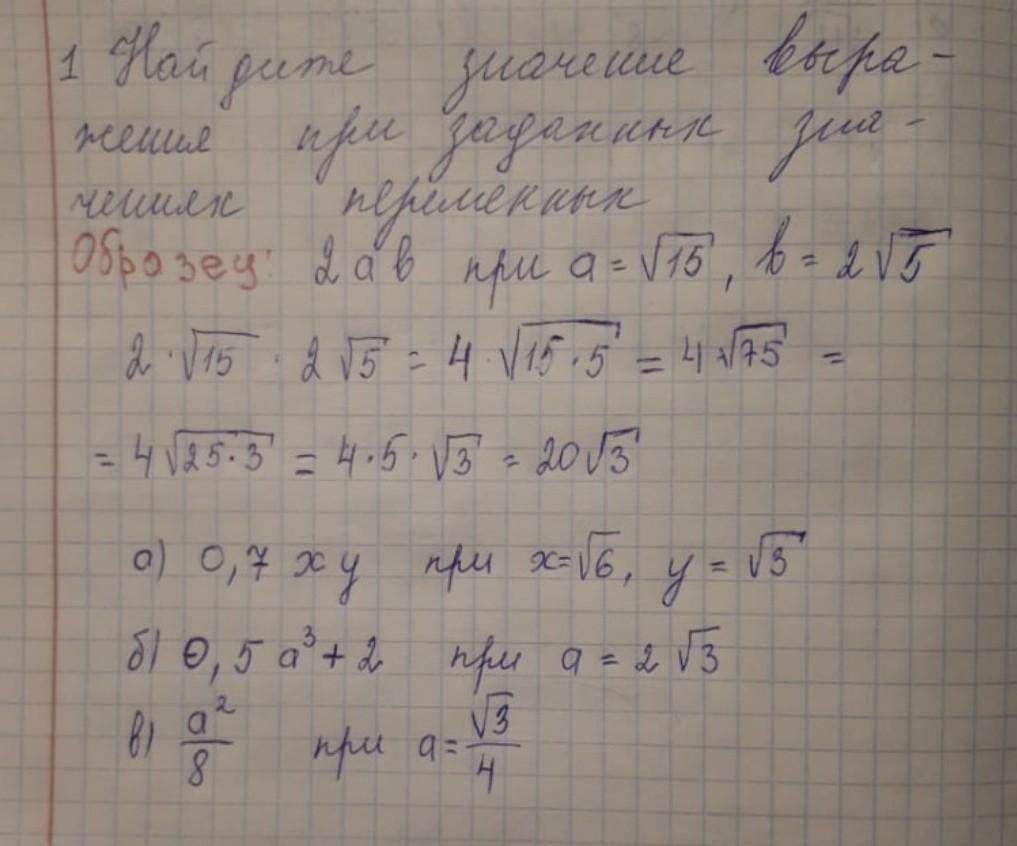 1 Найдите значение выра-
жения при заданных зна-
чениях переменных
Образец: 2ав при a = √15, b = 2√5
2 · √15 · 2√5 = 4 · √15·5 = 4√75 =
= 4√25·3 = 4·5·√3 = 20√3
а) 0,7 xy при x=√6, y = √3
б) 0,5 a³ + 2 при a = 2√3
в) a²/8 при a = √3/4